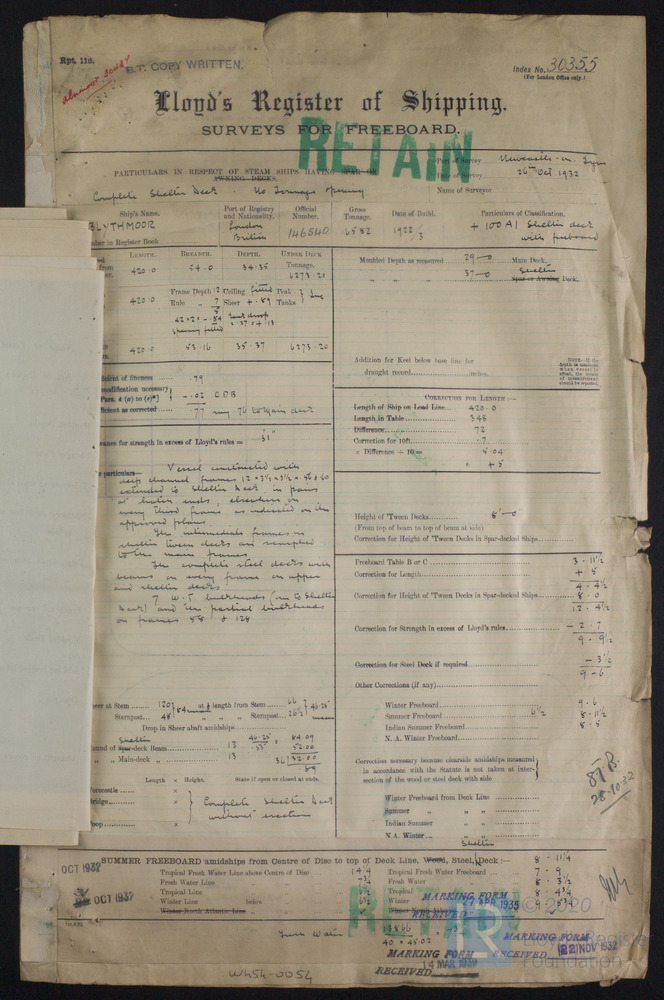 Rpt. 11b.
B.T. COPY WRITTEN.
Index No. 30355
(For London Office only.)
Lloyd's Register of Shipping.
SURVEYS FOR FREEBOARD.
RETAIN
Port of Survey Newcastle-on-Tyne
PARTICULARS IN RESPECT OF STEAM SHIPS HAVING SPAR OR
AWNING DECKS.
Date of Survey 26th Oct 1932
Name of Surveyor
Complete Shelter Deck - No Tonnage opening
Ship's Name.
BLYTHMOOR
Port of Registry and Nationality.
London
British
Official Number.
146540
Gross Tonnage.
6582
Date of Build.
1922/3
Particulars of Classification.
+ 100A1 Shelter deck
with freeboard
Number in Register Book
LENGTH. BREADTH. DEPTH. UNDER DECK Tonnage.
420.0 54.0 34.35 6273.20
420.0 Frame Depth 12 Ceiling fitted Peak
Rule " 7 Sheer + .89 Tanks
420.0 53.16 35.37 6273.20
Moulded Depth as measured 29-0 Main Deck.
" " 37-0 Shelter
Spar or Awning Deck.
Addition for Keel below base line for
draught record inches.
Coefficient of fineness .79
modification necessary
Para. 4 (a) to (e)*] -.02 CDB
Coefficient as corrected .77
CORRECTION FOR LENGTH:—
Length of Ship on Load Line... 420.0
Length in Table 348
Difference 72
Correction for 10ft. .7
× Difference ÷ 10 = 5.04
+5
Allowance for strength in excess of Lloyd's rules =
particulars Vessel constructed with
deep channel frames
extended to shelter deck in pairs
every third frame as indicated on the
approved plans
The intermediate frames in
shelter tween decks are scarphed
to the main frames
The complete steel decks with
beams on every frame on upper
and shelter decks
7 W.T. bulkheads (one to Shelter
deck) and ten partial bulkheads
on frames 58 & 128
Height of 'Tween Decks 8'-0"
(From top of beam to top of beam at side)
Correction for Height of 'Tween Decks in Spar-decked Ships
Freeboard Table B or C 3 - 11½
Correction for Length + 5
4 - 4½
Correction for Height of 'Tween Decks in Spar-decked Ships 8.0
12.4½
Correction for Strength in excess of Lloyd's rules - 2.7
9 - 9½
Correction for Steel Deck if required - 3½
9 - 6
Other Corrections (if any)
Winter Freeboard 9.6
Summer Freeboard 6½ 8 - 11½
Indian Summer Freeboard 8 - 5
N. A. Winter Freeboard
Sheer at Stem 120
Sternpost 48
at ⅛ length from Stem 66
" " " Sternpost 26½
Drop in Sheer abaft amidships
Shelter
Round of Spar-deck Beam 13
" " Main-deck " 13
Length × Height. State if open or closed at ends.
Forecastle ×
Bridge ×
Poop ×
Complete Shelter Deck
without erections
Correction necessary because clearside amidships measured
in accordance with the Statute is not taken at inter-
section of the wood or steel deck with side
Winter Freeboard from Deck Line
Summer " "
Indian Summer " "
N A. Winter " "
28.10.32
Shelter
SUMMER FREEBOARD amidships from Centre of Disc to top of Deck Line, Wood, Steel, Deck:— 8 - 11¼
OCT 1932
Tropical Fresh Water Line above Centre of Disc 14.4
Fresh Water Line
Tropical Line
Winter Line below 6½
Winter North Atlantic Line
Tropical Fresh Water Freeboard 7 - 9
Fresh Water 8 - 3½
Tropical 8 - 4¾
Winter 9 5¾
OCT 1932
RETAIN
MARKING FORM
APR 1935
RECEIVED
MARKING FORM
RECEIVED 22 NOV 1932
MARKING FORM
14 MAR 1939
RECEIVED
40 × 45.02
W454-0054
© 2020
Lloyd's Register
Foundation